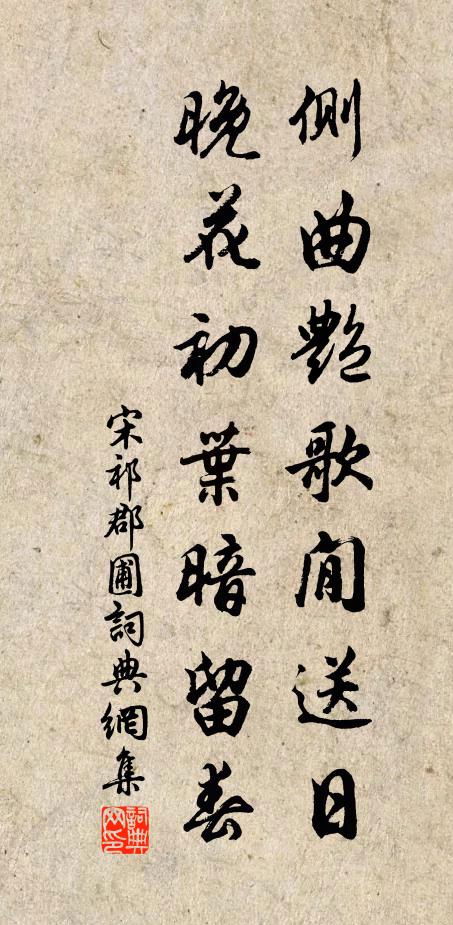 側曲艷歌閒送日
晚花初葉暗留春
宋祁郡圃詞典網集
詞典網印